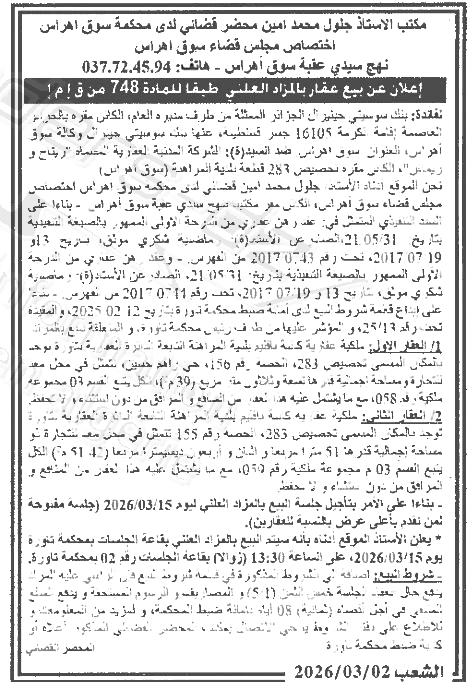 مكتب الاستاذ جلول محمد امين محضر قضائي لدى محكمة سوق اهراس
اختصاص مجلس قضاء سوق اهراس
نهج سيدي عقبة سوق أهراس - هاتف: 037.72.45.94
إعلان عن بيع عقار بالمزاد العلني طبقا للمادة 748 من ق إ م إ
لفائدة: بنك سوسيتي جينيرال الجزائر الممثلة من طرف مديره العام، الكائن مقره بالجزائر
العاصمة إقامة الكرمة 16105 جسر قسنطينة، عنها بنك سوسيتي جنيرال وكالة سوق
أهراس، العنوان سوق اهراس ضد السيد(ة): الشركة المدنية العقارية المسماة
الكائن مقره بتخصيص 283 قطعة بلدية المراهنة (سوق أهراس)
نحن الموقع أدناه الأستاذ، جلول محمد امين قضائي لدى محكمة سوق أهراس اختصاص
مجلس قضاء سوق أهراس، الكائن مقر مكتبه نهج سيدي عقبة سوق أهراس - بناءا على
السند التنفيذي المتمثل في: عقد رهن عقاري من الدرجة الأولى الممهور بالصيغة التنفيذية
بتاريخ 21/05/31، الصادر عن الأستاذ(ة): ماضسية شكري موثق، بتاريخ 13 و
19 07 2017، تحت رقم 0743 2017 من الفهرس. - وعقد رهن عقاري من الدرجة
الأولى الممهور بالصيغة التنفيذية بتاريخ: 21/05/31، الصادر عن الأستاذ(ة): ماضسية
شكري موثق، بتاريخ 13 و 19/07/2017، تحت رقم 0741 2017 من الفهرس - بناءا
على إيداع قائمة شروط البيع لدى أمانة ضبط محكمة تاورة بتاريخ 12 02 2025، والمقيدة
تحت رقم: 25/13، و المؤشر عليها من طرف رئيس محكمة تاورة، و المتعلقة ببيع بالمزاد
1/ العقار الأول: ملكية عقارية كائنة باقليم بلدية المراهنة التابعة الدائرة العقارية بتاورة توجد
بالمكان المسمى تخصيص 283، الحصة رقم 156، حي إبراهم حسين، تتمثل في محل معد
للتجارة و مساحة اجمالية قدرها تسعة وثلاثون متر مربع (39 م²)، الكل يتبع القسم 03 مجموعة
ملكية رقم 058، مع ما يشتمل عليه هذا العقار من المنافع و المرافق من دون استثناء و لا تحفظ
2/ العقار الثاني: ملكية عقارية كائنة باقليم بلدية المراهنة التابعة الدائرة العقارية بتاورة
توجد بالمكان المسمى تخصيص 283، الحصة رقم 155 تتمثل في محل معد للتجارة ذو
مساحة إجمالية قدرها 51 مترا مربعا و اثنان و أربعون ديسيمترا مربعا (42 51 م²) الكل
يتبع القسم 03 م مجموعة ملكية رقم 059، مع ما يشتمل عليه هذا العقار من المنافع و
المرافق من دون استثناء و لا تحفظ
- بناءا على الأمر بتأجيل جلسة البيع بالمزاد العلني ليوم 2026/03/15 (جلسة مفتوحة
لمن تقدم بأعلى عرض بالنسبة للعقارين).
* يعلن الأستاذ الموقع أدناه بأنه سيتم البيع بالمزاد العلني بقاعة الجلسات بمحكمة تاورة
يوم 2026/03/15، على الساعة 13:30 (زوالا) بقاعة الجلسات رقم 02 بمحكمة تاورة.
- شروط البيع: إضافة إلى الشروط المذكورة في قائمة شروط البيع فإن الراسي عليه المزاد
يدفع حال انعقاد الجلسة خمس الثمن (5/1) و المصاريف و الرسوم المستحقة و يدفع المبلغ
المتبقي في أجل أقصاه (ثمانية) 08 أيام بأمانة ضبط المحكمة، و لمزيد من المعلومات و
للاطلاع على دفتر الشروط يرجى الاتصال بمكتب المحضر القضائي المذكور أعلاه أو
كتابة ضبط محكمة تاورة
المحضر القضائي
الشعب 2026/03/02